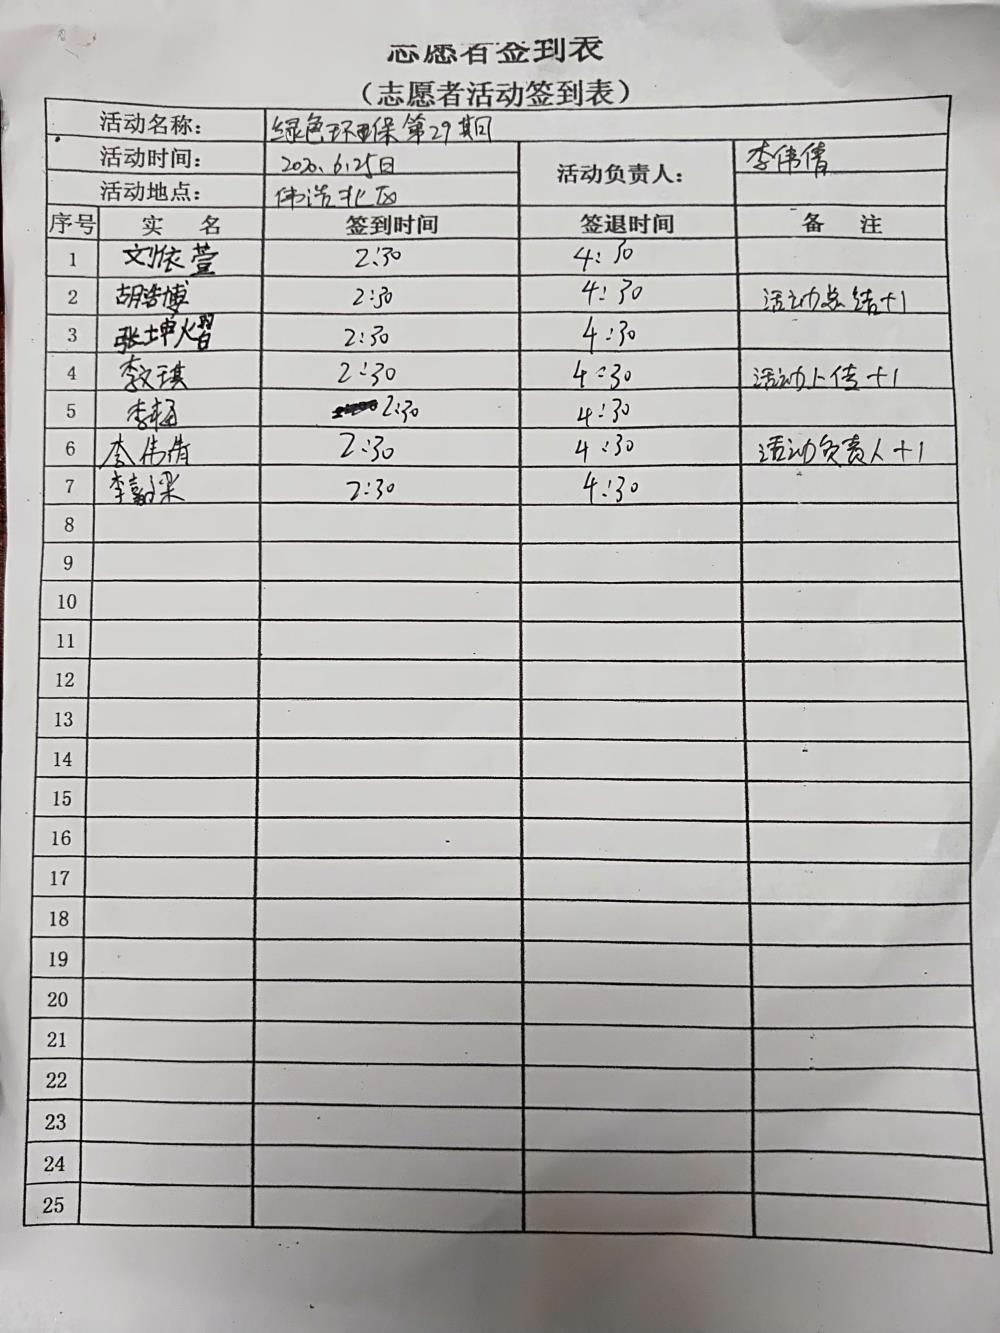 志愿者签到表
（志愿者活动签到表）
活动名称： 绿色环保第29期
活动时间： 2020.6.25日 活动负责人： 李伟倩
活动地点： 伟浩北区
序号 实 名 签到时间 签退时间 备 注
1 刘依萱 2:30 4:30
2 胡浩博 2:30 4:30 活动总结+1
3 张坤熠 2:30 4:30
4 李文琪 2:30 4:30 活动上传+1
5 2:30 4:30
6 李伟倩 2:30 4:30 活动负责人+1
7 2:30 4:30
8
9
10
11
12
13
14
15
16
17
18
19
20
21
22
23
24
25